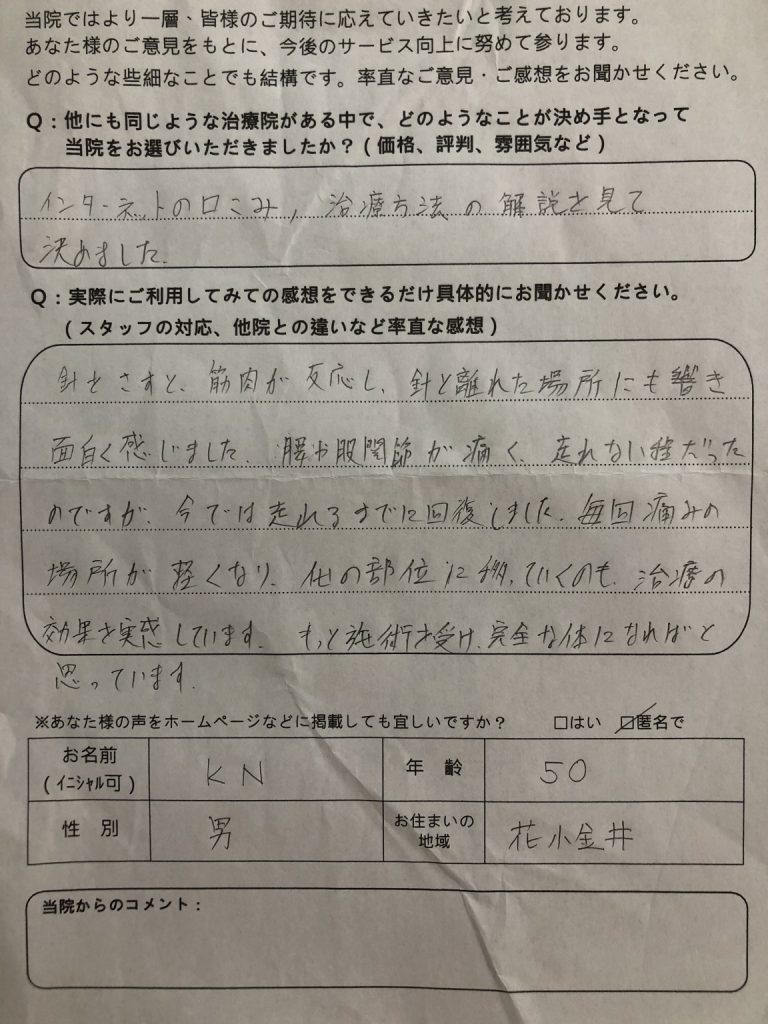 当院ではより一層、皆様のご期待に応えていきたいと考えております。
あなた様のご意見をもとに、今後のサービス向上に努めて参ります。
どのような些細なことでも結構です。率直なご意見・ご感想をお聞かせください。
Q：他にも同じような治療院がある中で、どのようなことが決め手となって
当院をお選びいただきましたか？（価格、評判、雰囲気など）
インターネットの口こみ，治療方法の解説を見て
決めました．
Q：実際にご利用してみての感想をできるだけ具体的にお聞かせください。
（スタッフの対応、他院との違いなど率直な感想）
針をさすと、筋肉が反応し、針と離れた場所にも響き
面白く感じました．腰や股関節が痛く、走れない程だった
のですが、今では走れるまでに回復しました．毎回痛みの
場所が軽くなり、他の部位に移っていくのも、治療の
効果を実感しています．もっと施術を受け、完全な体になればと
思っています．
※あなた様の声をホームページなどに掲載しても宜しいですか？ □はい ☑匿名で
お名前 KN 年齢 50
（イニシャル可）
性別 男 お住まいの 花小金井
地域
当院からのコメント：